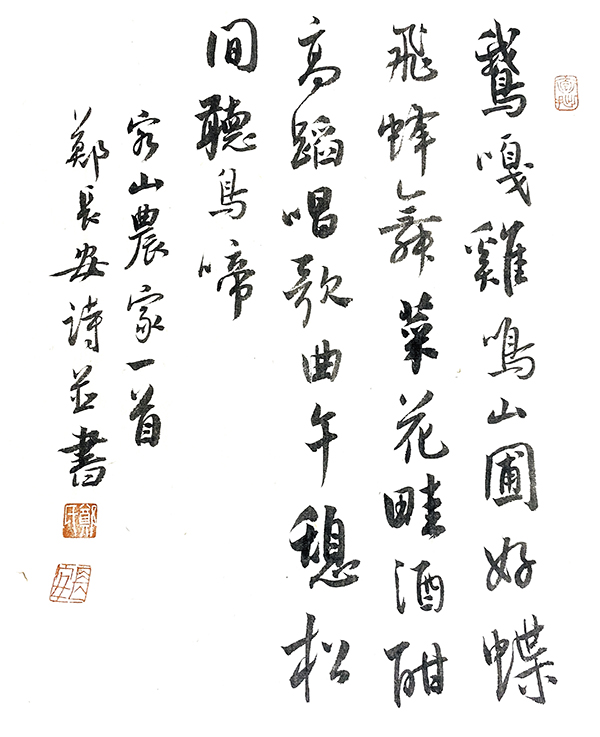 鵞嘎雞鳴山圃好蝶
飛蜂舞菜花畦酒酣
高蹈唱歌曲午憩松
间聽鳥啼
农山農家一首
鄭長安詩並書